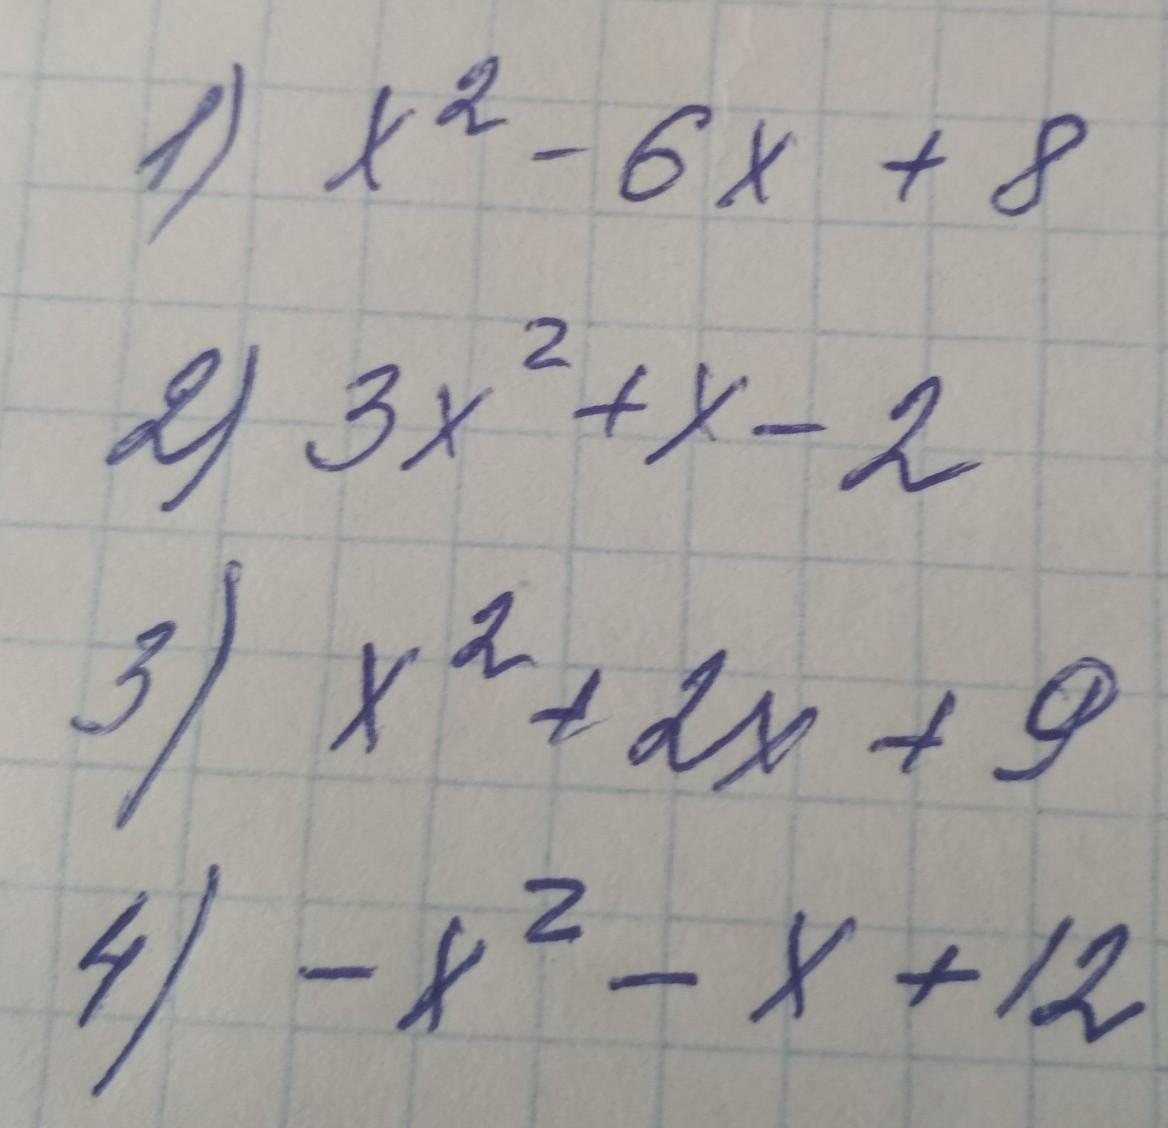 1) x² - 6x + 8
2) 3x² + x - 2
3) x² + 2x + 9
4) - x² - x + 12